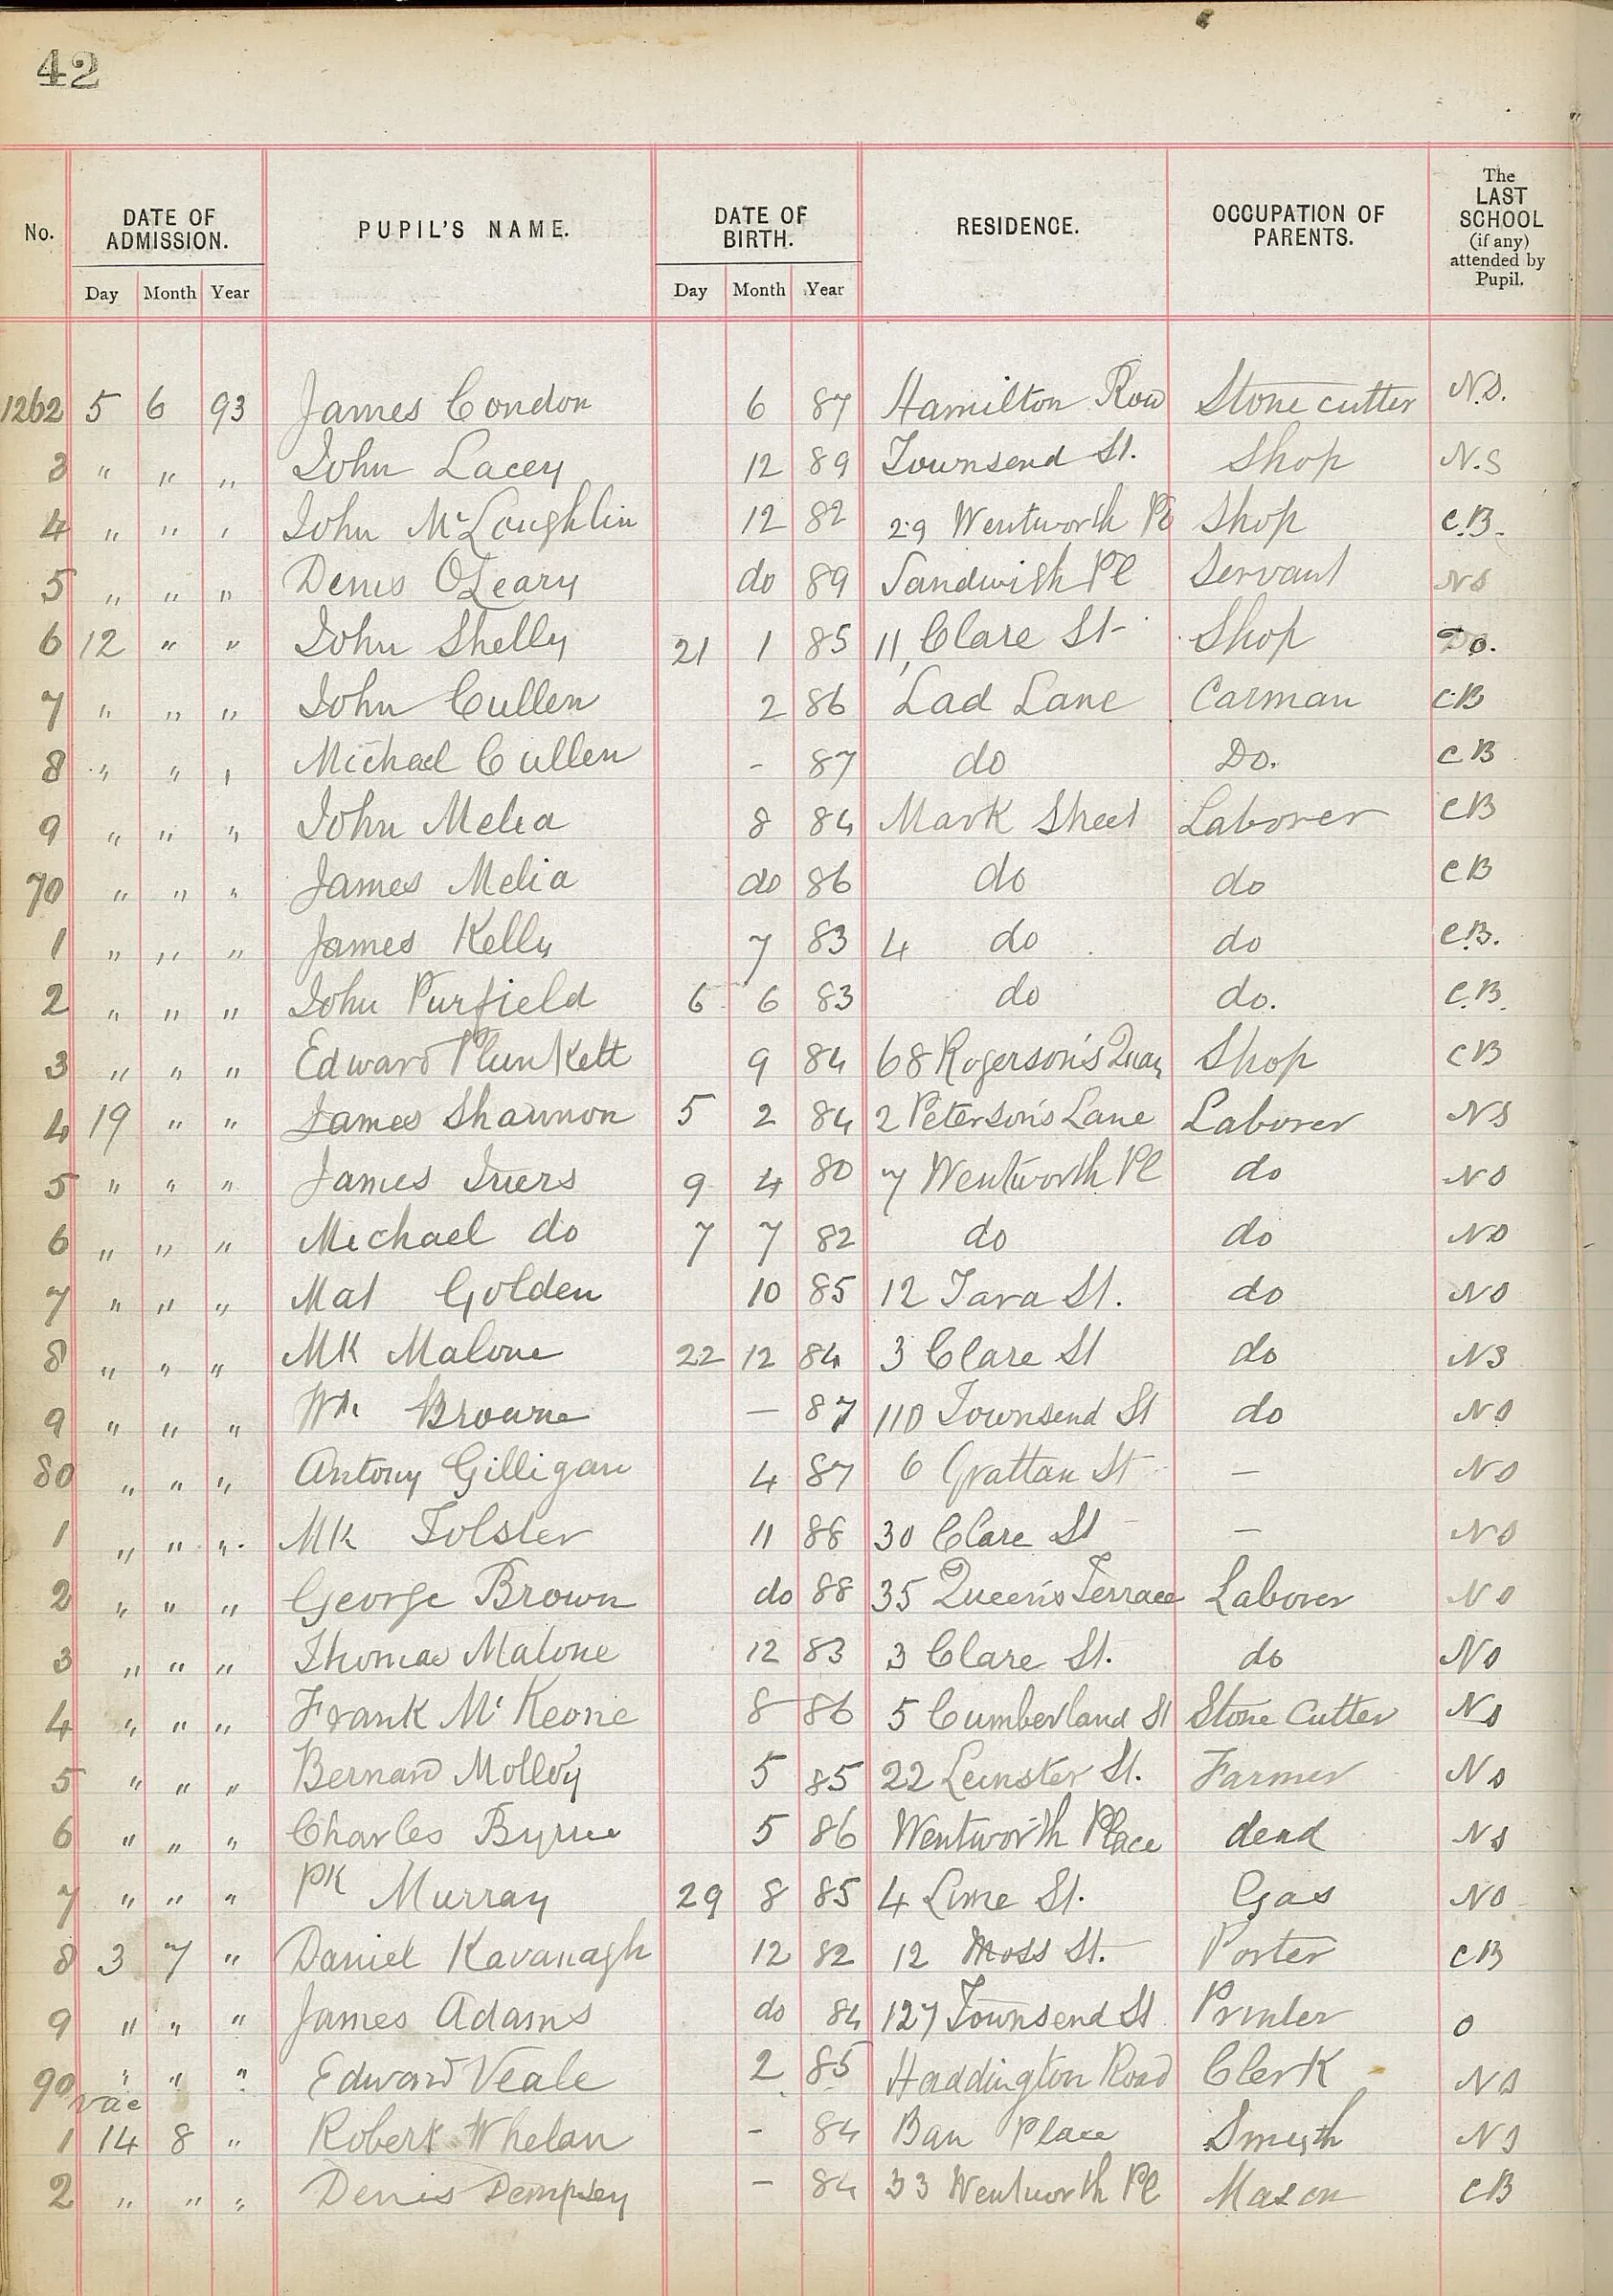 42
No. DATE OF ADMISSION. PUPIL'S NAME. DATE OF BIRTH. RESIDENCE. OCCUPATION OF PARENTS. The LAST SCHOOL (if any) attended by Pupil.
Day Month Year Day Month Year
1262 5 6 93 James Condon 6 87 Hamilton Row Stone cutter N.S.
3 " " " John Lacey 12 89 Townsend St. Shop N.S
4 " " " John McLoughlin 12 82 29 Wentworth Pl Shop C.B.
5 " " " Denis O'Leary do 89 Sandwith Pl Servant NS
6 12 " " John Shelly 21 1 85 11, Clare St Shop Do.
7 " " " John Cullen 2 86 Lad Lane Carman C.B
8 " " " Michael Cullen - 87 do Do. CB
9 " " " John Melia 8 84 Mark Street Laborer CB
70 " " " James Melia do 86 do do CB
1 " " " James Kelly 7 83 4 do do C.B.
2 " " " John Purfield 6 6 83 do do. C.B.
3 " " " Edward Plunkett 9 84 68 Rogerson's Quay Shop CB
4 19 " " James Shannon 5 2 84 2 Peterson's Lane Laborer NS
5 " " " James Ivers 9 4 80 7 Wentworth Pl do NS
6 " " " Michael do 7 7 82 do do NS
7 " " " Mat Golden 10 85 12 Tara St. do NS
8 " " " Mk Malone 22 12 84 3 Clare St do NS
9 " " " Wm Browne — 87 110 Townsend St do NS
80 " " " Antony Gilligan 4 87 6 Grattan St — NS
1 " " " Mk Tolster 11 88 30 Clare St — NS
2 " " " George Brown do 88 35 Queen's Terrace Laborer NS
3 " " " Thomas Malone 12 83 3 Clare St. do NS
4 " " " Frank McKeone 8 86 5 Cumberland St Stone Cutter NS
5 " " " Bernard Molloy 5 85 22 Leinster St. Farmer NS
6 " " " Charles Byrne 5 86 Wentworth Place dead NS
7 " " " Pk Murray 29 8 85 4 Lime St. Gas NS
8 3 7 " Daniel Kavanagh 12 82 12 Moss St. Porter CB
9 " " " James Adams do 84 127 Townsend St Printer 0
90 " " " Edward Veale 2 85 Haddington Road Clerk NS
vac
1 14 8 " Robert Whelan - 84 Place Smyth NS
2 " " " Denis Dempsey — 84 33 Wentworth Pl Mason CB